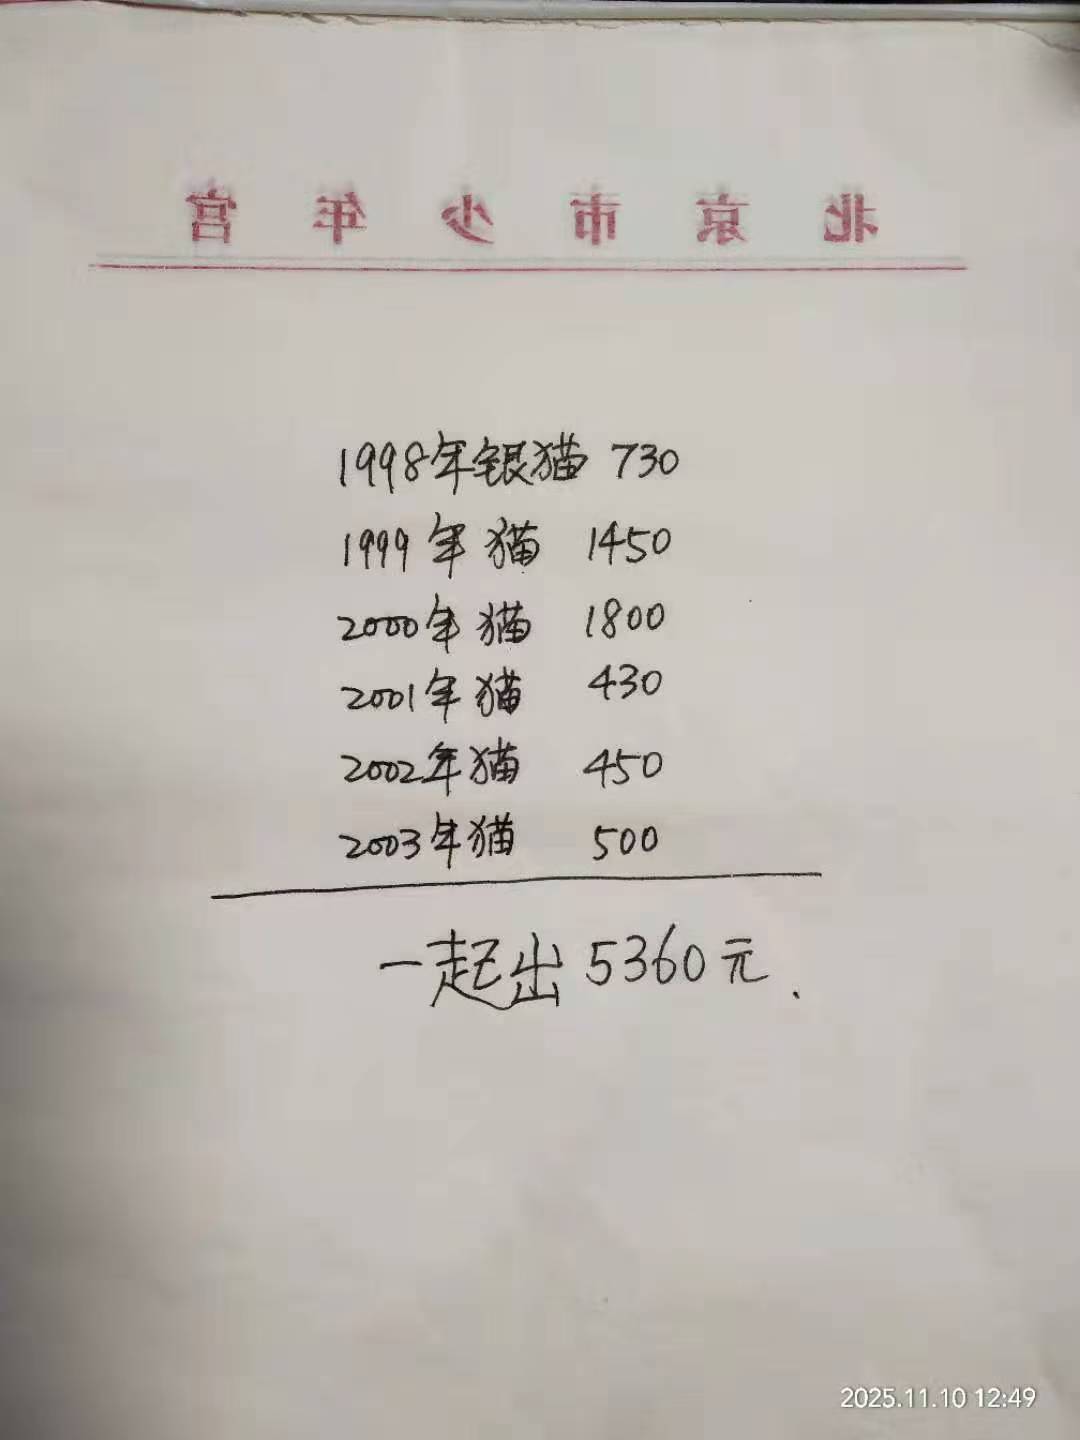 北京市少年宫
1998年银猫 730
1999年猫 1450
2000年猫 1800
2001年猫 430
2002年猫 450
2003年猫 500
一起出5360元.
2025.11.10 12:49